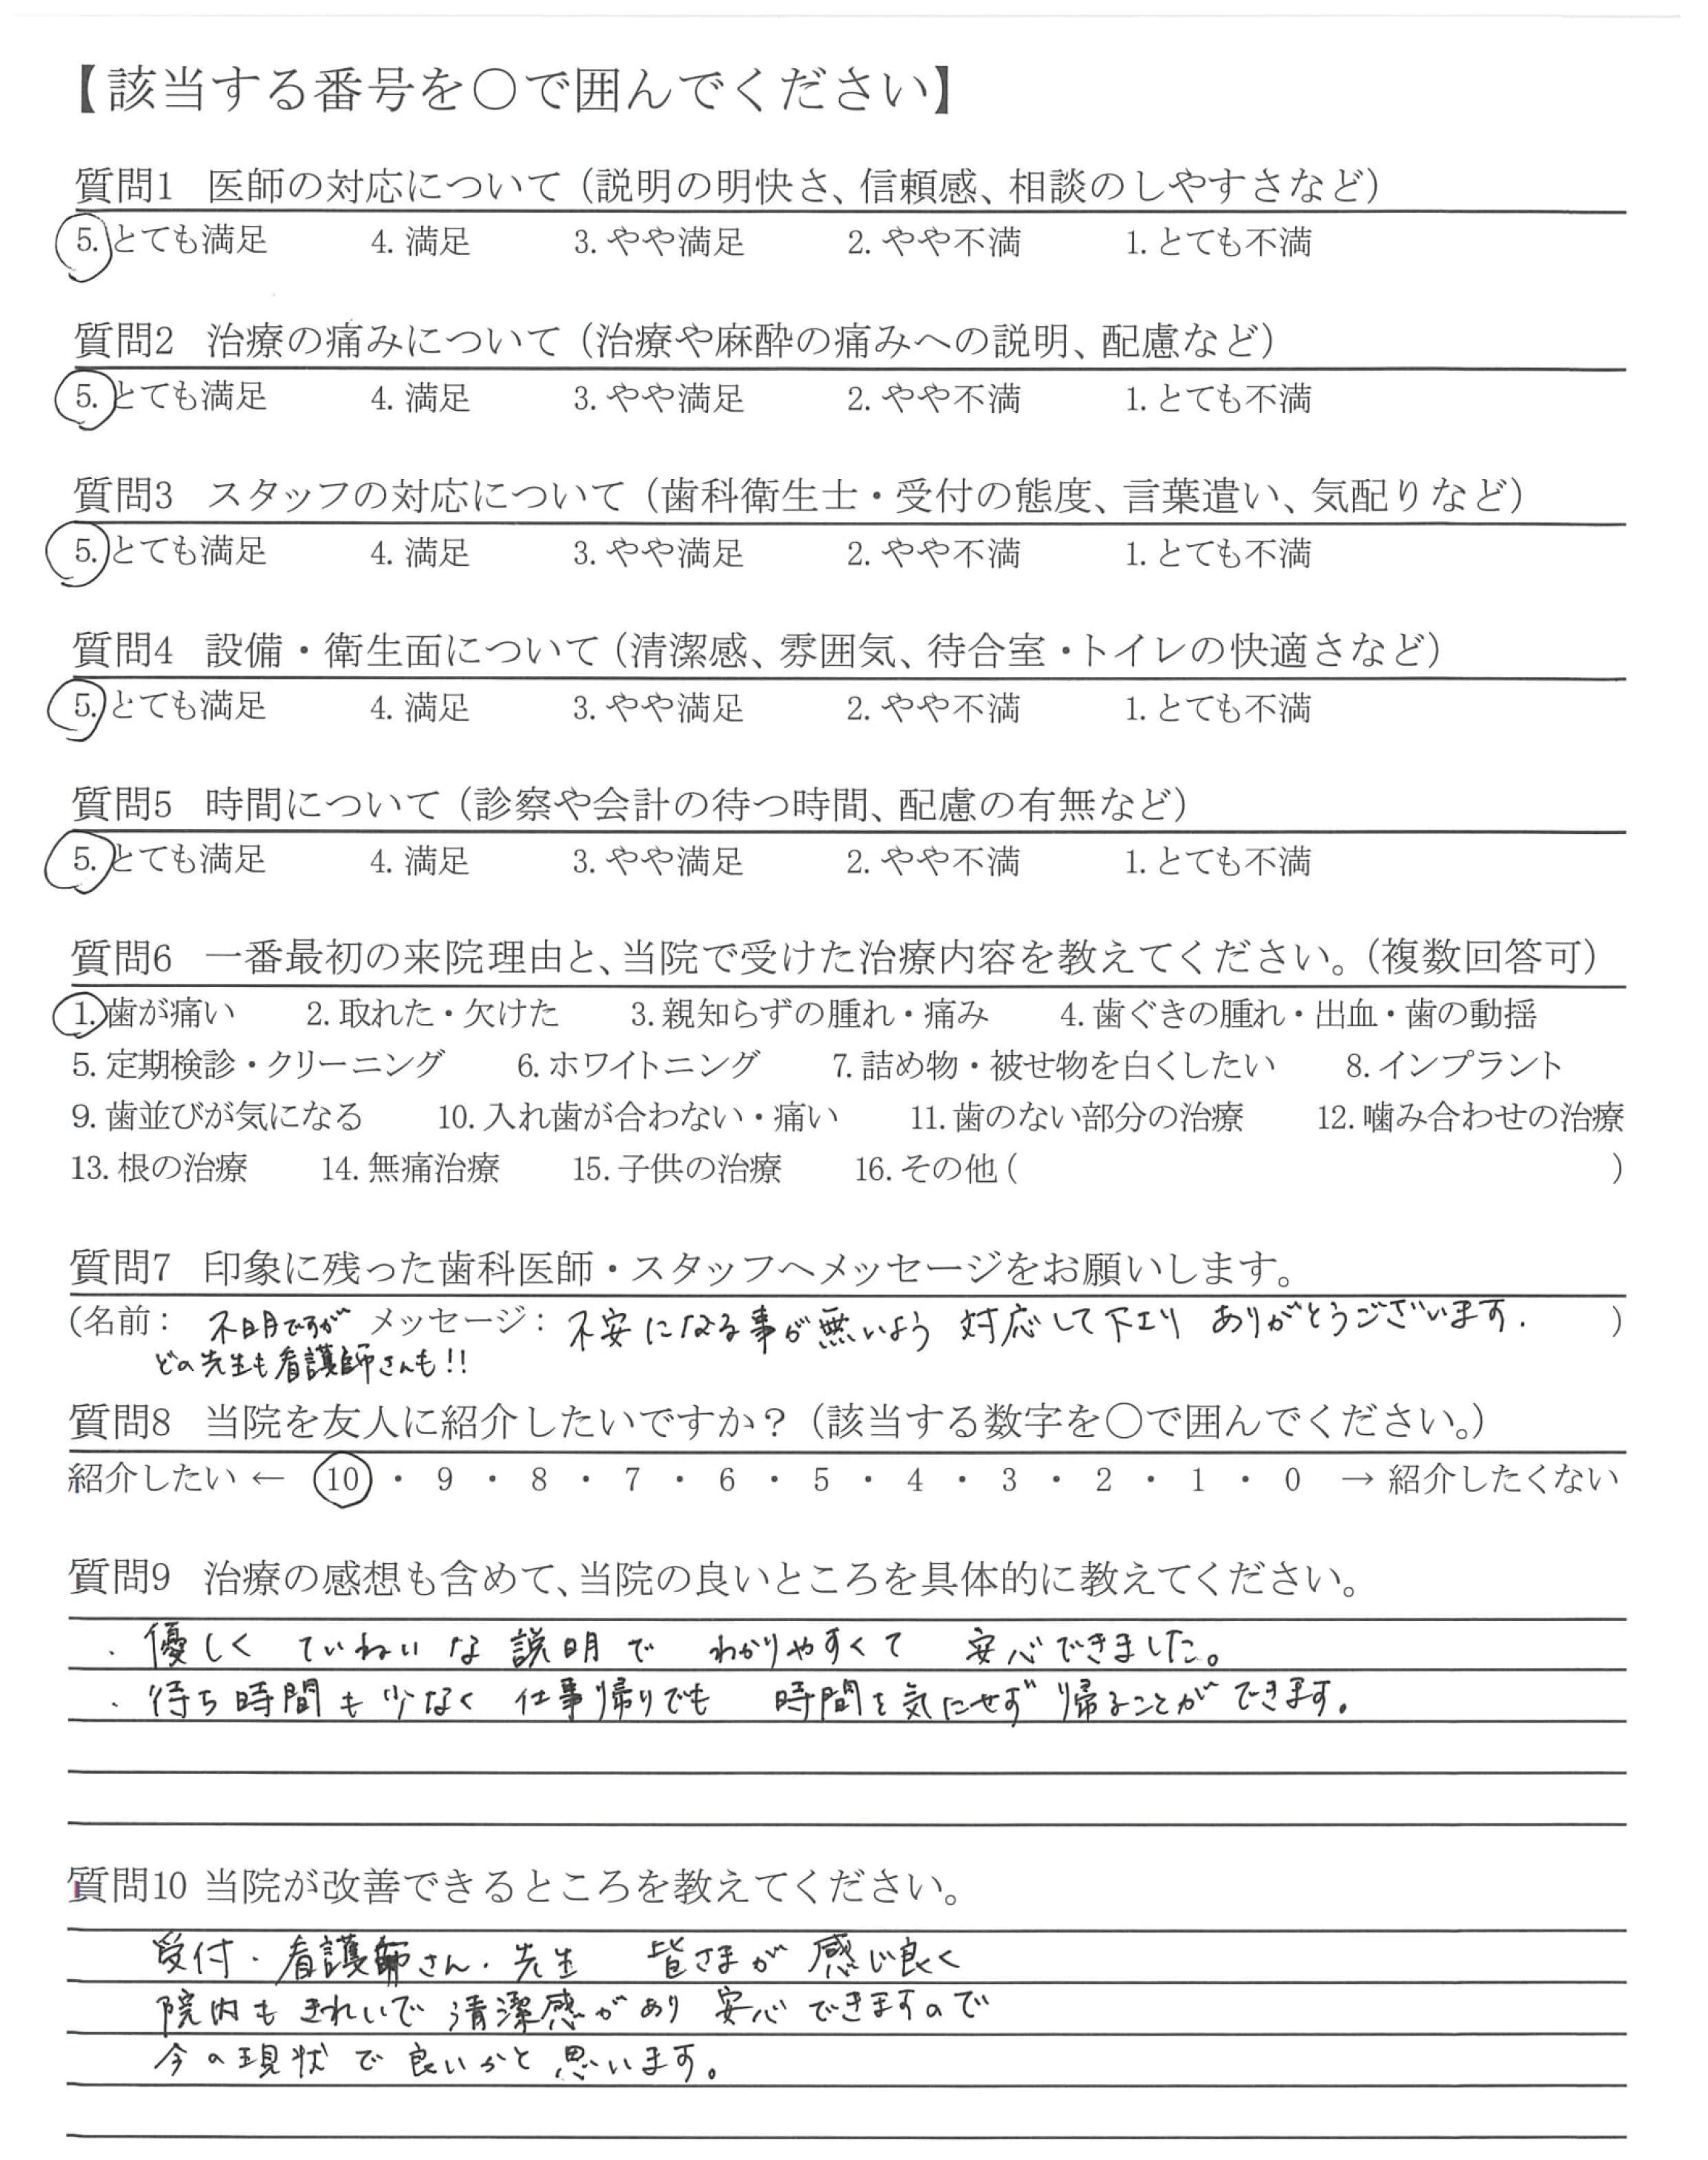 【該当する番号を○で囲んでください】
質問1 医師の対応について（説明の明快さ、信頼感、相談のしやすさなど）
5. とても満足 4. 満足 3. やや満足 2. やや不満 1. とても不満
質問2 治療の痛みについて（治療や麻酔の痛みへの説明、配慮など）
5. とても満足 4. 満足 3. やや満足 2. やや不満 1. とても不満
質問3 スタッフの対応について（歯科衛生士・受付の態度、言葉遣い、気配りなど）
5. とても満足 4. 満足 3. やや満足 2. やや不満 1. とても不満
質問4 設備・衛生面について（清潔感、雰囲気、待合室・トイレの快適さなど）
5. とても満足 4. 満足 3. やや満足 2. やや不満 1. とても不満
質問5 時間について（診察や会計の待つ時間、配慮の有無など）
5. とても満足 4. 満足 3. やや満足 2. やや不満 1. とても不満
質問6 一番最初の来院理由と、当院で受けた治療内容を教えてください。（複数回答可）
1. 歯が痛い 2. 取れた・欠けた 3. 親知らずの腫れ・痛み 4. 歯ぐきの腫れ・出血・歯の動揺
5. 定期検診・クリーニング 6. ホワイトニング 7. 詰め物・被せ物を白くしたい 8. インプラント
9. 歯並びが気になる 10. 入れ歯が合わない・痛い 11. 歯のない部分の治療 12. 噛み合わせの治療
13. 根の治療 14. 無痛治療 15. 子供の治療 16. その他（ ）
質問7 印象に残った歯科医師・スタッフへメッセージをお願いします。
（名前： 不明ですが メッセージ： 不安になる事が無いよう 対応して下さり ありがとうございます. ）
どの先生も看護師さんも!!
質問8 当院を友人に紹介したいですか？（該当する数字を○で囲んでください。）
紹介したい ← 10 ・ 9 ・ 8 ・ 7 ・ 6 ・ 5 ・ 4 ・ 3 ・ 2 ・ 1 ・ 0 → 紹介したくない
質問9 治療の感想も含めて、当院の良いところを具体的に教えてください。
・優しく ていねいな説明で わかりやすくて 安心できました。
・待ち時間も少なく 仕事帰りでも 時間を気にせず帰ることができます。
質問10 当院が改善できるところを教えてください。
受付・看護師さん・先生 皆さまが 感じ良く
院内もきれいで清潔感があり 安心できますので
今の現状で良いかと思います。